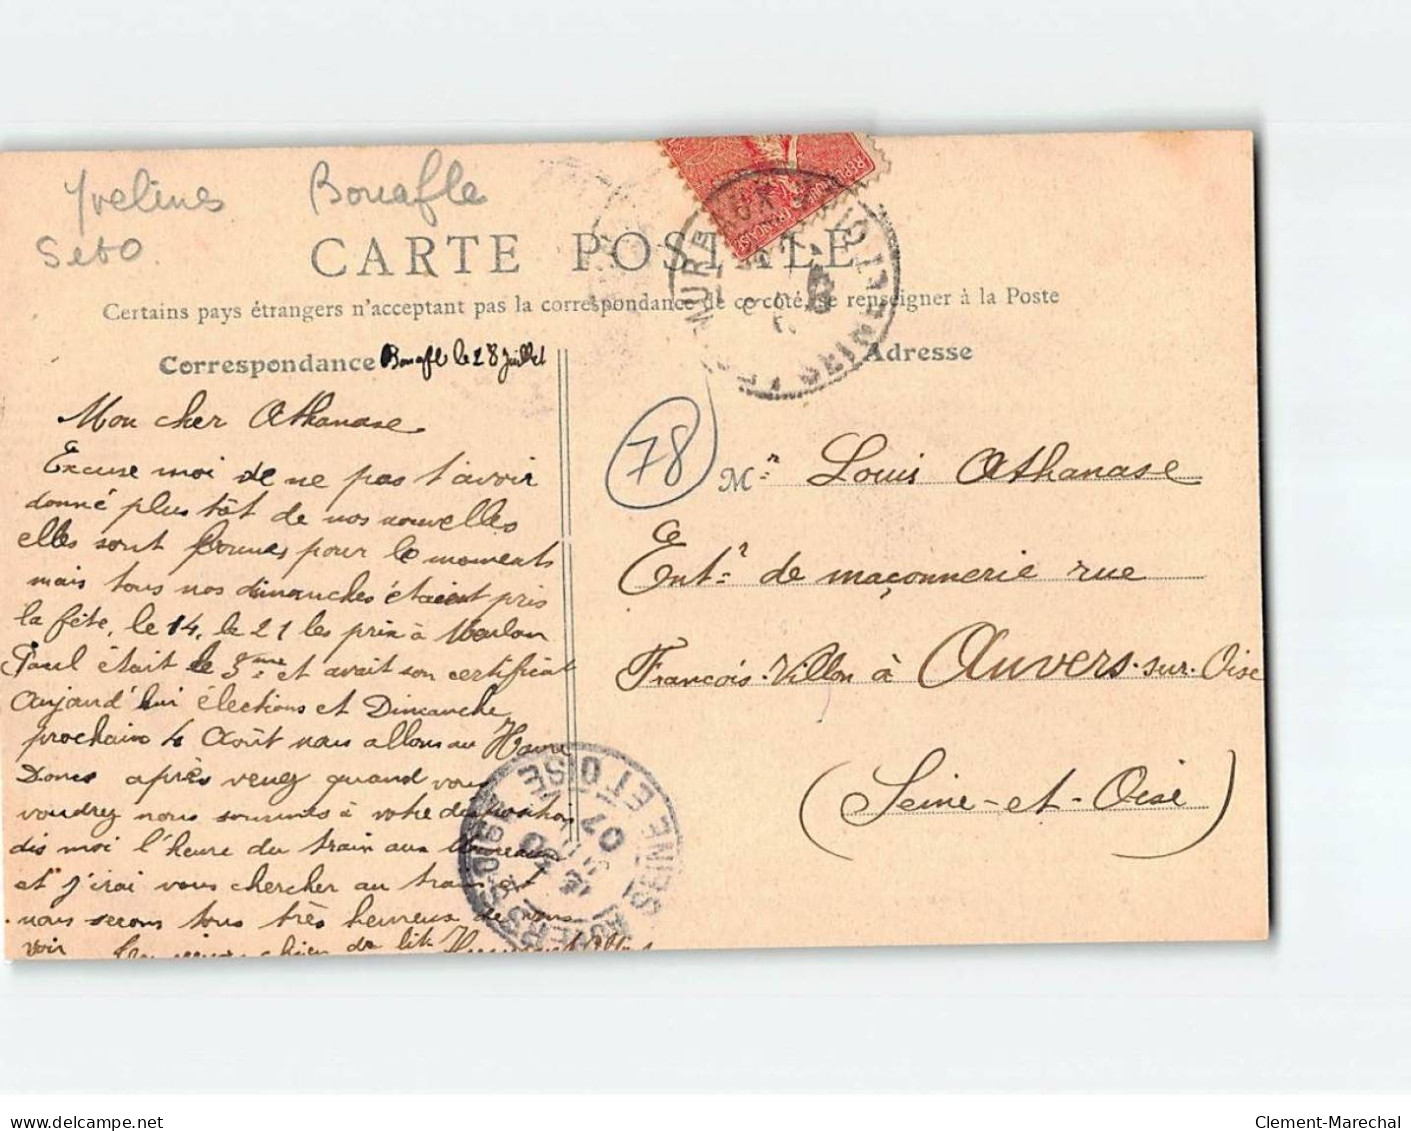 Yvelines Bouafle
Seto.
CARTE POSTALE
Certains pays étrangers n'acceptent pas la correspondance de ce côté, se renseigner à la Poste
Correspondance Bouafle le 28 Juillet
Adresse
Mon cher Athanase
Excuse moi de ne pas t'avoir
donné plus tôt de nos nouvelles
elles sont bonnes pour le moment
mais tous nos dimanches étaient pris
la fête, le 14, le 21 les prix à Meulan
Paul était le 3eme et avait son certificat
aujourd'hui élections et Dimanche
prochain 4 Août nous allons au Havre
Donc après venez quand vous
voudrez nous sommes à votre disposition
dis moi l'heure du train aux Mureaux
et j'irai vous chercher au train
nous serons tous très heureux de vous
voir
78
Mr Louis Athanase
Entr de maçonnerie rue
Francois Villon à Auvers-sur-Oise
(Seine-et-Oise)
SEINE ET OISE
07
REPUBLIQUE FRANÇAISE
Clement-Marechal